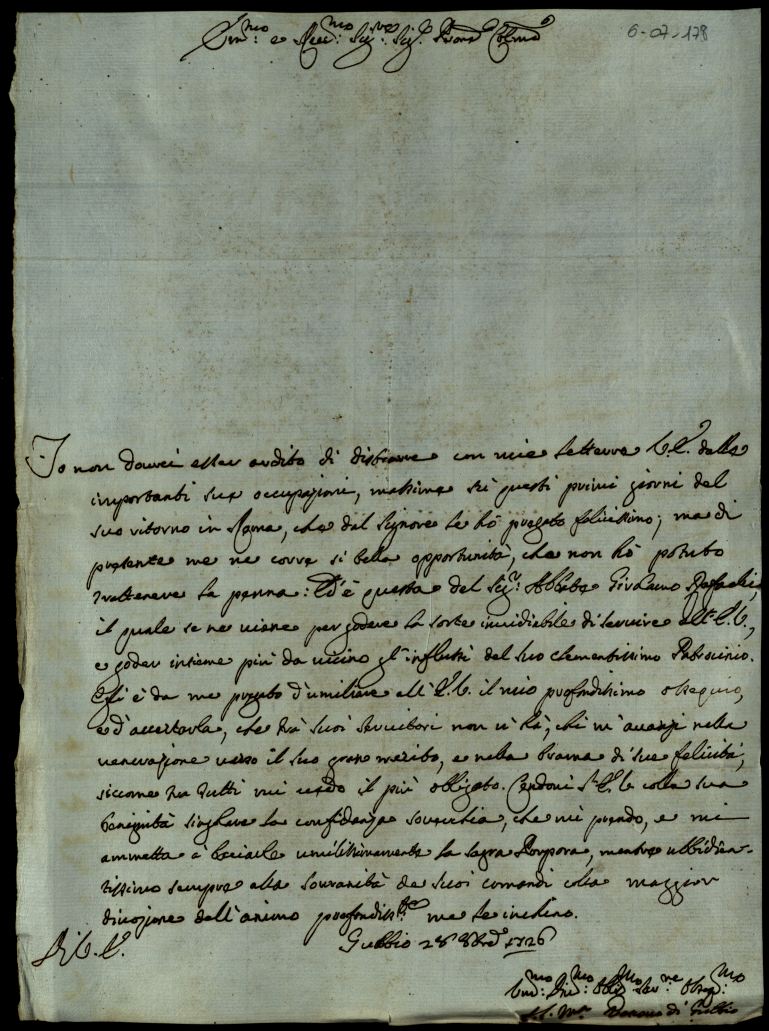 6-07-178
Em:mo e Rev:mo Sig:re Sig: Pron: Col:mo
Io non dovrei esser ardito di distrarre con mie lettere V.E. dalle
importanti sue occupazioni, massime sù questi primi giorni del
suo ritorno in Roma, che dal Signore le hò pregato felicissimo; ma di
presente me ne corre sì bella opportunità, che non hò potuto
trattenere la penna: Ed è questa del Sig:r Abbate Girolamo Raffaelli,
il quale se ne viene per godere la sorte invidiabile di servire all'E.V.,
e goder insieme più da vicino gl'influssi del suo clementissimo Patrocinio.
Egli è da me pregato d'umiliare all'E.V. il mio profondissimo ossequio,
e d'accertarla, che trà suoi servitori non v'hà, chi m'avanzi nella
venerazione verso il suo gran merito, e nella brama di sue felicità,
siccome tra tutti mi credo il più obligato. Condoni l'E.V. colla sua
benignità singolare la confidanza soverchia, che mi prendo, e mi
ammetta à baciarle umilissimamente la sagra Porpora, mentre ubbidien-
tissimo sempre alla sovranità de suoi comandi colla maggior
divozione dell'animo profondiss:te me le inchino.
Di V.E.
Gubbio 28 8bre 1726
Um:mo Div:mo Obl:mo Ser:re Osseq:mo
di Gubbio